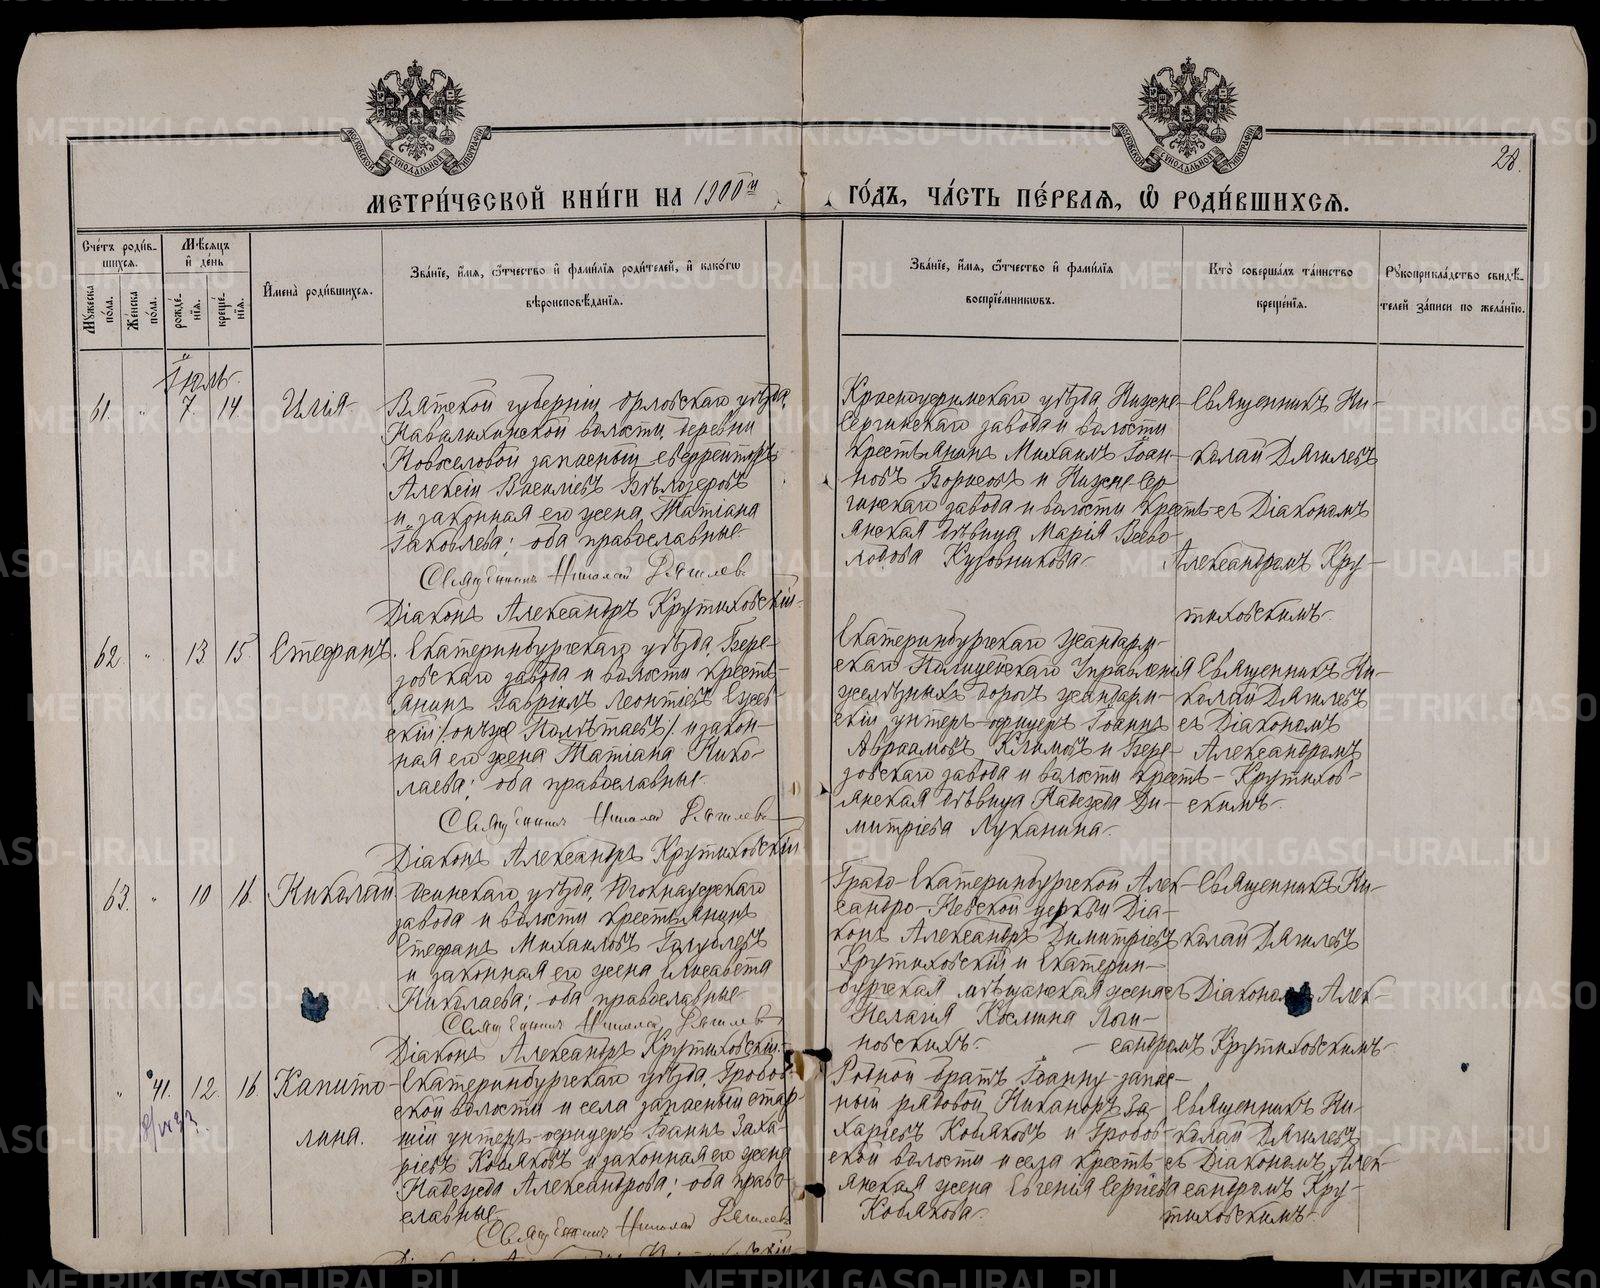 28.
МЕТРИ́ЧЕСКОЙ КНИ́ГИ НА 1900й
ГО́ДЪ, ЧА́СТЬ ПЕ́РВАѦ, Ѽ РОДИ́ВШИХСѦ.
Сче́тъ роди́в-
шихсѧ.
Мꙋ́жеска по́ла.
Же́нска по́ла.
Мѣ́сѧцъ и҆ де́нь
рожде́-нїѧ.
креще́-нїѧ.
И҆мена̀ роди́вшихсѧ.
Зва́нїе, и҆́мѧ, ѻ҆́тчество и҆ фами́лїѧ роди́телей, и҆ како́гѡ
вѣроисповѣ́данїѧ.
Зва́нїе, и҆́мѧ, ѻ҆́тчество и҆ фами́лїѧ
воспрїе́мникѡвъ.
Кто̀ соверша́лъ та́инство
креще́нїѧ.
Рꙋкоприкла́дство свидѣ́-
телей за́писи по жела́нїю.
Іюль.
61. " 7. 14. Илія
Вятской губерніи Орловскаго уѣзда,
Кавалихинской волости, деревни
Новоселовой запасный ефрейторъ
Алексій Василіевъ Бѣлозеровъ
и законная его жена Татіана
Іаковлева; оба православные
Священникъ Николай Дягилевъ
Діаконъ Александръ Крутиховскій
Красноуфимскаго уѣзда Нижне-
Сергинскаго завода и волости
крестьянинъ Михаилъ Іоан-
новъ Борисовъ и Нижне Сер-
гинскаго завода и волости кресть-
янская дѣвица Марія Всево-
лодова Кузовникова
Священникъ Ни-
колай Дягилевъ
съ Діакономъ
Александромъ Кру-
тиховскимъ
62. " 13. 15. Стефанъ.
Екатеринбургскаго уѣзда, Бере-
зовскаго завода и волости кресть-
янинъ Гавріилъ Леонтіевъ Ежев-
скій /онъ же Полѣтаевъ/ и закон-
ная его жена Татіана Нико-
лаева; оба православные
Священникъ Николай Дягилевъ
Діаконъ Александръ Крутиховскій
Екатеринбургскаго жандарм-
скаго Полицейскаго Управленія
желѣзныхъ дорогъ жандарм-
скій унтеръ-офицеръ Іоаннъ
Авраамовъ Климовъ и Бере-
зовскаго завода и волости кресть-
янская дѣвица Надежда Ди-
митріева Луканина
Священникъ Ни-
колай Дягилевъ
съ Діакономъ
Александромъ
Крутихов-
скимъ
63. " 10 16. Николай
Осинскаго уѣзда, Югокнауфскаго
завода и волости крестьянинъ
Стефанъ Михаиловъ Голублевъ
и законная его жена Елисавета
Николаева; оба православные
Священникъ Николай Дягилевъ
Діаконъ Александръ Крутиховскій
Градо-Екатеринбургской Алек-
сандро-Невской церкви Діа-
конъ Александръ Димитріевъ
Крутиховскій и Екатерин-
бургская мѣщанская жена
Пелагія Космина Логи-
новскихъ
Священникъ Ни-
колай Дягилевъ
съ Діакономъ Алек-
сандромъ Крутиховскимъ
" 41. 12. 16. Капито-
лина.
Екатеринбургскаго уѣзда, Гробов-
ской волости и села запасный стар-
шій унтеръ-офицеръ Іоаннъ Заха-
ріевъ Кобяковъ и законная его жена
Надежда Александрова; оба право-
славные
Священникъ Николай Дягилевъ
Родной братъ Іоанну запас-
ный рядовой Никаноръ За-
харіевъ Кобяковъ и Гробов-
ской волости и села кресть-
янская жена Евгенія Сергіева
Кобякова
Священникъ Ни-
колай Дягилевъ
съ Діакономъ Алек-
сандромъ Кру-
тиховскимъ
METRIKI.GASO-URAL.RU